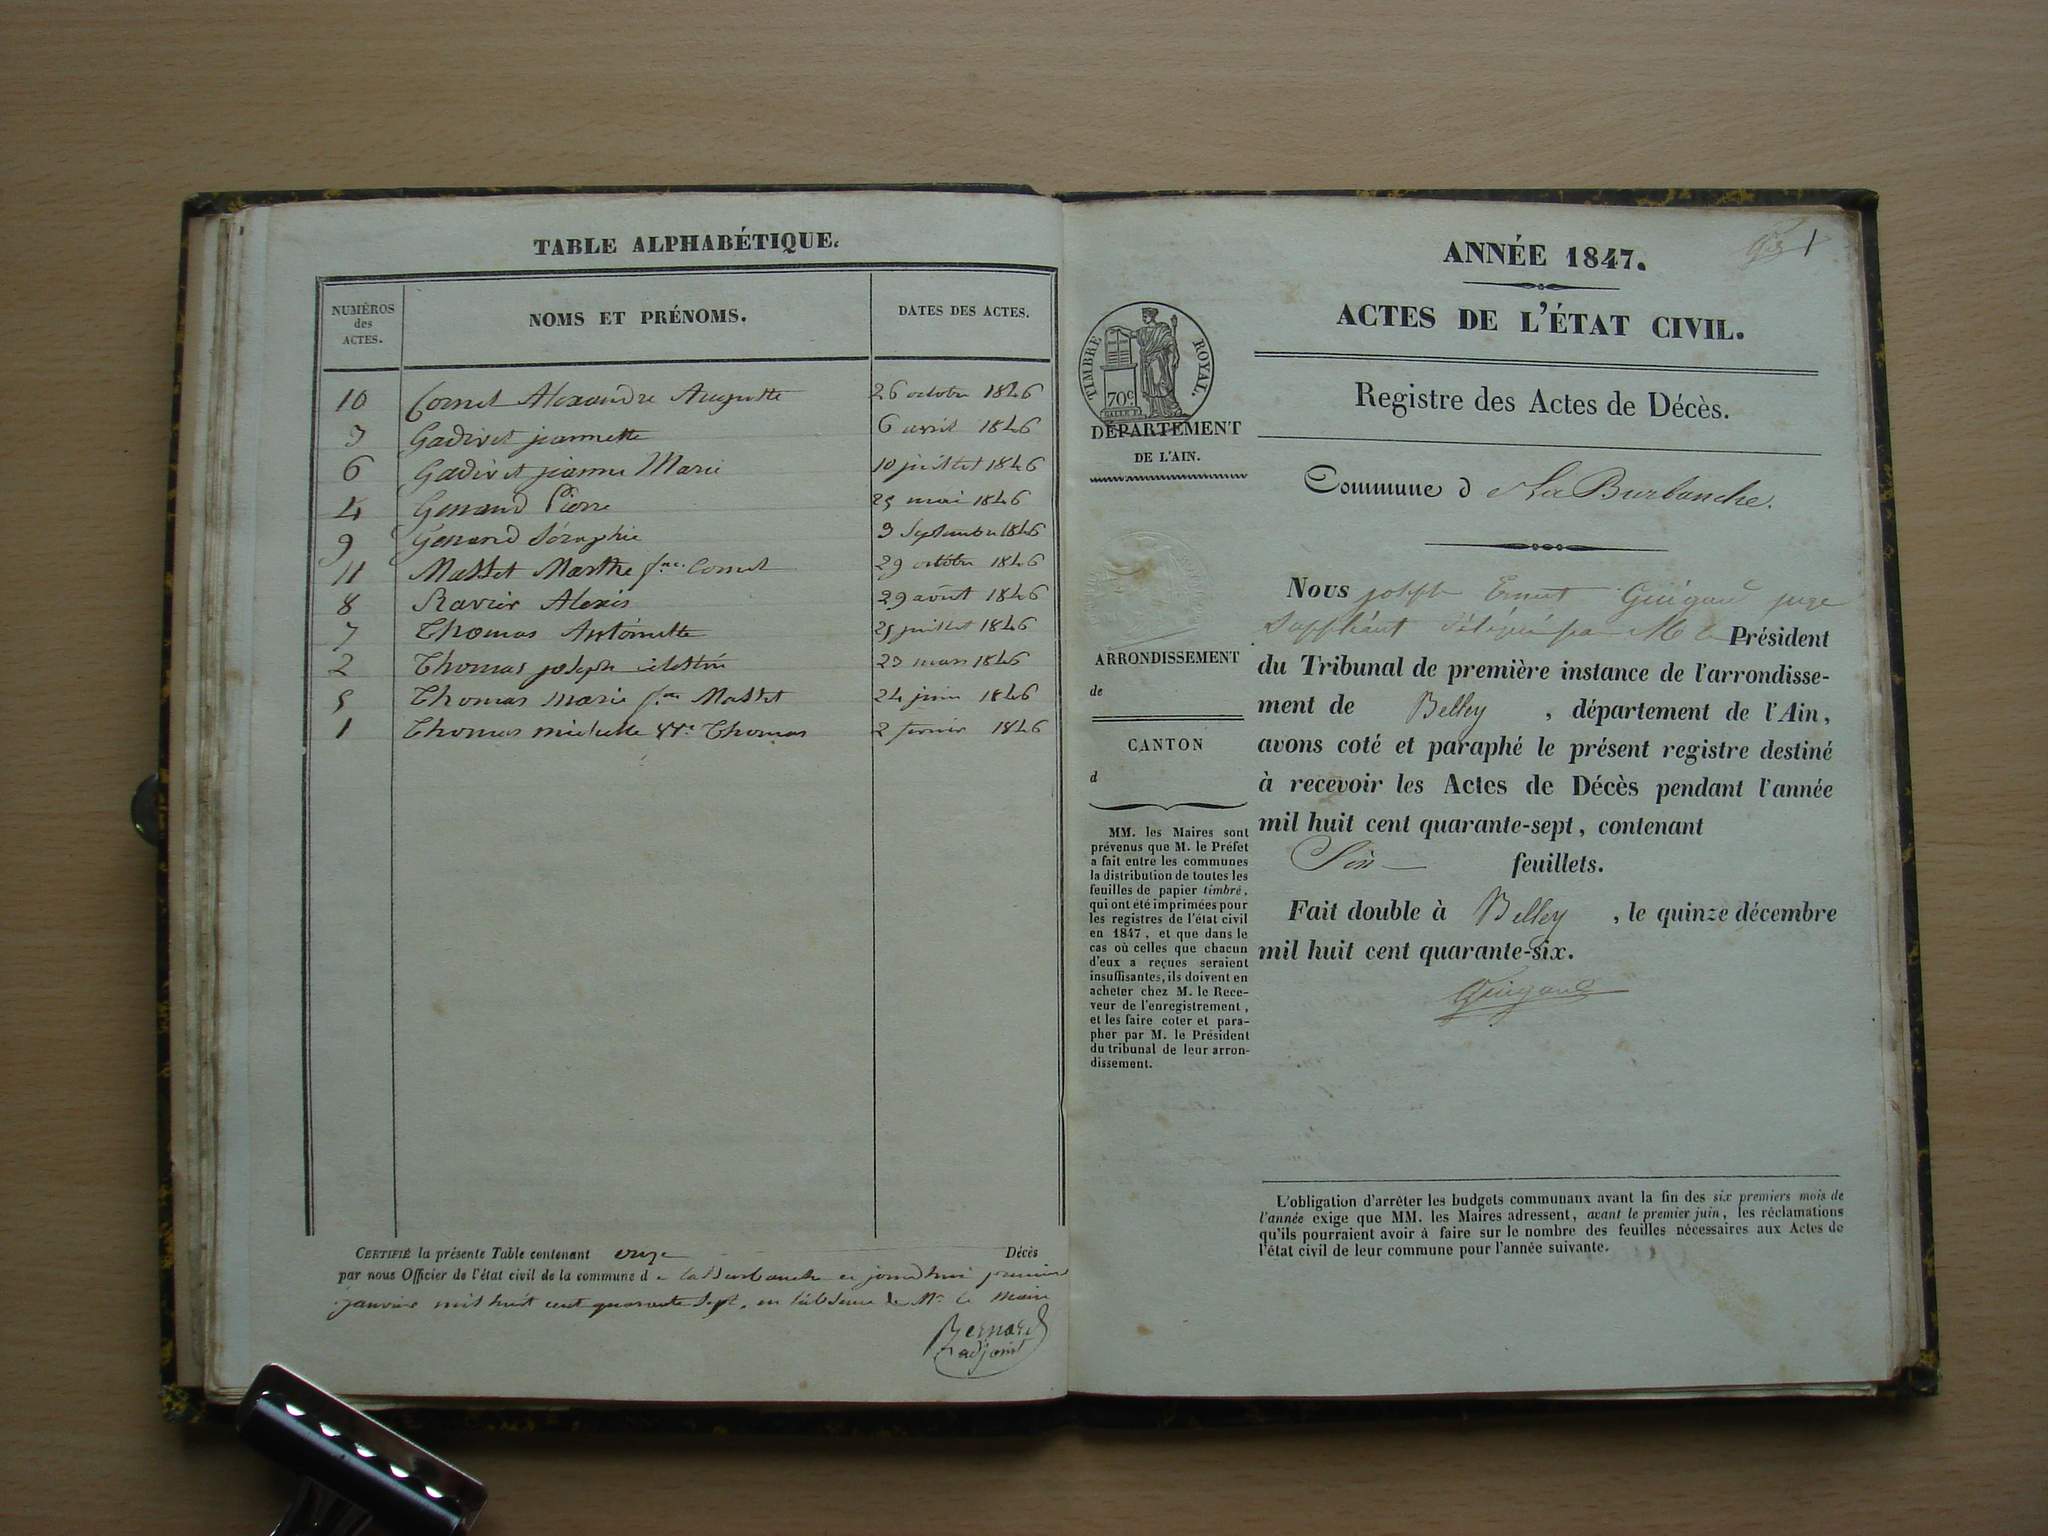 TABLE ALPHABÉTIQUE.
NUMÉROS
des
ACTES.
NOMS ET PRÉNOMS.
DATES DES ACTES.
10 Cornet Alexandre Auguste 26 octobre 1846
3 Gadivet jeannette 6 avril 1846
6 Gadivet jeanne Marie 10 juillet 1846
4 Genand Pierre 25 mai 1846
9 Genand Séraphie 9 Septembre 1846
11 Masset Marthe fme Cornet 29 octobre 1846
8 Ravier Alexis 29 août 1846
7 Thomas Antoinette 25 juillet 1846
2 Thomas joseph célestin 23 mars 1846
5 Thomas marie fme Masset 24 juin 1846
1 Thomas michelle Vve Thomas 2 fevrier 1846
CERTIFIÉ la présente Table contenant onze Décès
par nous Officier de l'état civil de la commune d e la Burbanche ce jourdhui premier
janvier mil huit cent quarante sept, en l'absence de Mr le Maire
Bernard
adjoint
1
ANNÉE 1847.
ACTES DE L'ÉTAT CIVIL.
Registre des Actes de Décès.
TIMBRE ROYAL.
70c
DÉPARTEMENT
DE L'AIN.
Commune d e La Burbanche.
ARRONDISSEMENT
de
CANTON
d
MM. les Maires sont
prévenus que M. le Préfet
a fait entre les communes
la distribution de toutes les
feuilles de papier timbré,
qui ont été imprimées pour
les registres de l'état civil
en 1847, et que dans le
cas où celles que chacun
d'eux a reçues seraient
insuffisantes, ils doivent en
acheter chez M. le Rece-
veur de l'enregistrement,
et les faire coter et para-
pher par M. le Président
du tribunal de leur arron-
dissement.
Nous joseph Ernest Guigard juge
Suppléant délégué par M le Président
du Tribunal de première instance de l'arrondisse-
ment de Belley, département de l'Ain,
avons coté et paraphé le présent registre destiné
à recevoir les Actes de Décès pendant l'année
mil huit cent quarante-sept, contenant
Six feuillets.
Fait double à Belley, le quinze décembre
mil huit cent quarante-six.
Guigard
L'obligation d'arrêter les budgets communaux avant la fin des six premiers mois de
l'année exige que MM. les Maires adressent, avant le premier juin, les réclamations
qu'ils pourraient avoir à faire sur le nombre des feuilles nécessaires aux Actes de
l'état civil de leur commune pour l'année suivante.